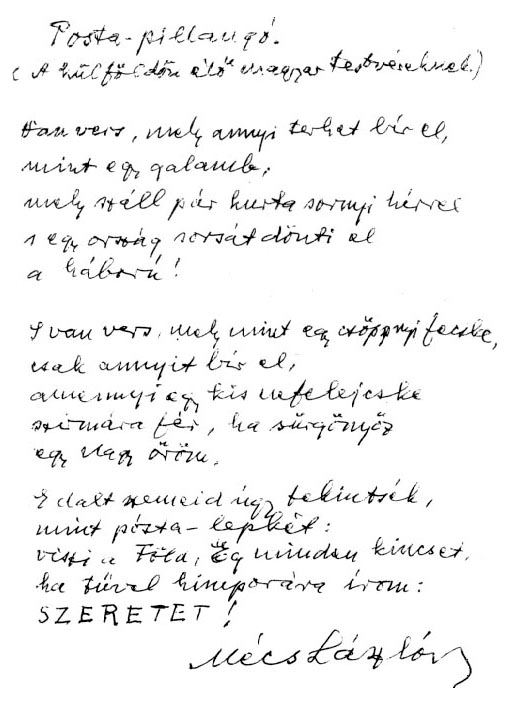 Posta-pillangó.
(A külföldön élő magyar testvéreknek.)
Van vers, mely annyi terhet bír el,
mint egy galamb,
mely száll pár kurta sornyi hírrel
s egy ország sorsát dönti el
a háború!
S van vers, mely mint egy csöppnyi fecske,
csak annyit bír el,
amennyi egy kis nefelejcske
szirmára fér, ha sürgönyöz
egy nagy öröm.
E dalt szemeid úgy tekintsék,
mint pósta-lepkét:
viszi a Föld, Ég minden kincsét,
ha tűvel hímporára írom:
SZERETET!
Mécs László